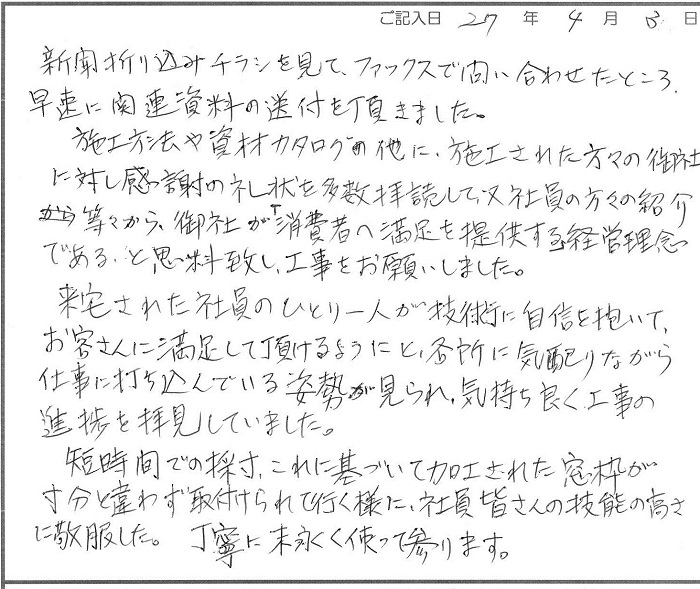 ご記入日 27 年 4 月 3 日
新聞折り込みチラシを見て、ファックスで問い合わせたところ、
早速に関連資料の送付を頂きました。
施工方法や資材カタログの他に、施工された方々の御社
に対し感謝の礼状を多数拝読して、又社員の方々の紹介
から等々から、御社が「消費者へ満足を提供する経営理念」
である、と思料致し、工事をお願いしました。
来宅された社員のひとり一人が技術に自信を抱いて、
お客さんに満足して頂けるようにと、各所に気配りながら
仕事に打ち込んでいる姿勢が見られ、気持ち良く工事の
進捗を拝見していました。
短時間での採寸、これに基づいて加工された窓枠が
寸分と違わず取付けられて行く様に、社員皆さんの技能の高さ
に敬服した。 丁寧に末永く使って参ります。